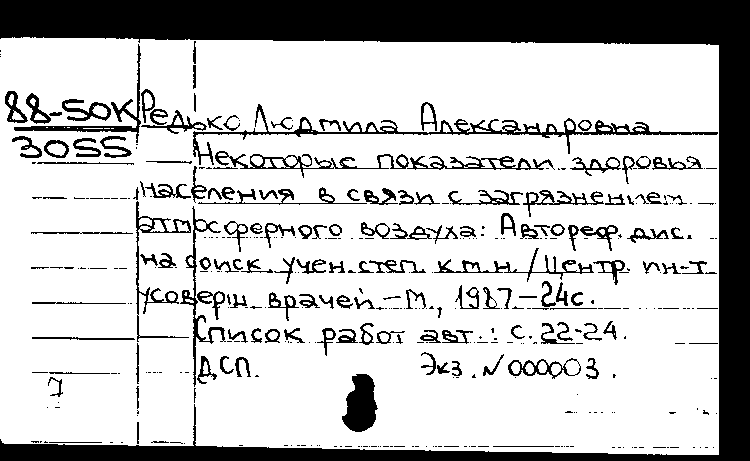 88-50К Редько, Людмила Александровна
3055 Некоторые показатели здоровья
населения в связи с загрязнением
атмосферного воздуха: Автореф. дис.
на соиск. учен. степ. к.м.н. / Центр. ин-т
усоверш. врачей. - М., 1987. - 24с.
Список работ авт.: с. 22-24.
ДСП. Экз. № 000003.
7